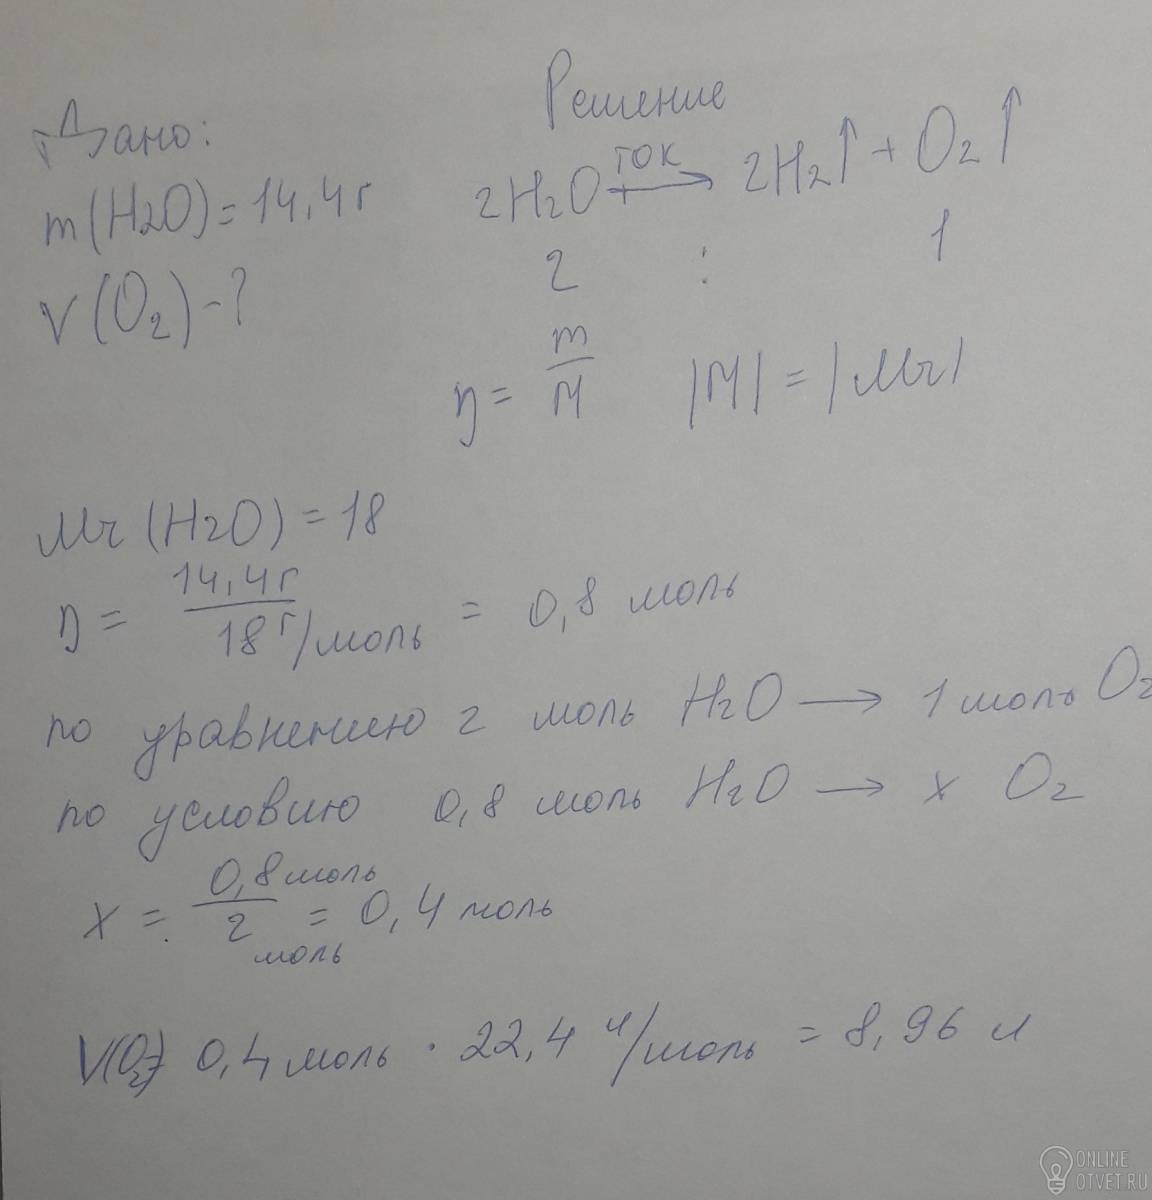 Дано:
m(H2O)=14,4г
V(O2)-?
Решение
2H2O ток→ 2H2↑ + O2↑
2 : 1
n = m/M |M| = |Mr|
Mr (H2O) = 18
n = 14,4г / 18 г/моль = 0,8 моль
по уравнению 2 моль H2O → 1 моль O2
по условию 0,8 моль H2O → x O2
x = 0,8 моль / 2 моль = 0,4 моль
V(O2)= 0,4 моль · 22,4 л/моль = 8,96 л
ONLINE
OTVET.RU